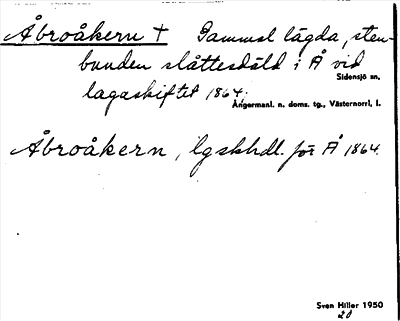 Åbroåkern † Gammal lägda, sten-
bunden slåttesdäld i Å vid
Sidensjö sn.
lagaskiftet 1864.
Ångermanl. n. doms. tg., Västernorrl. l.
Åbroåkern, lgskhdl. för Å 1864.
Sven Hiller 1950
20